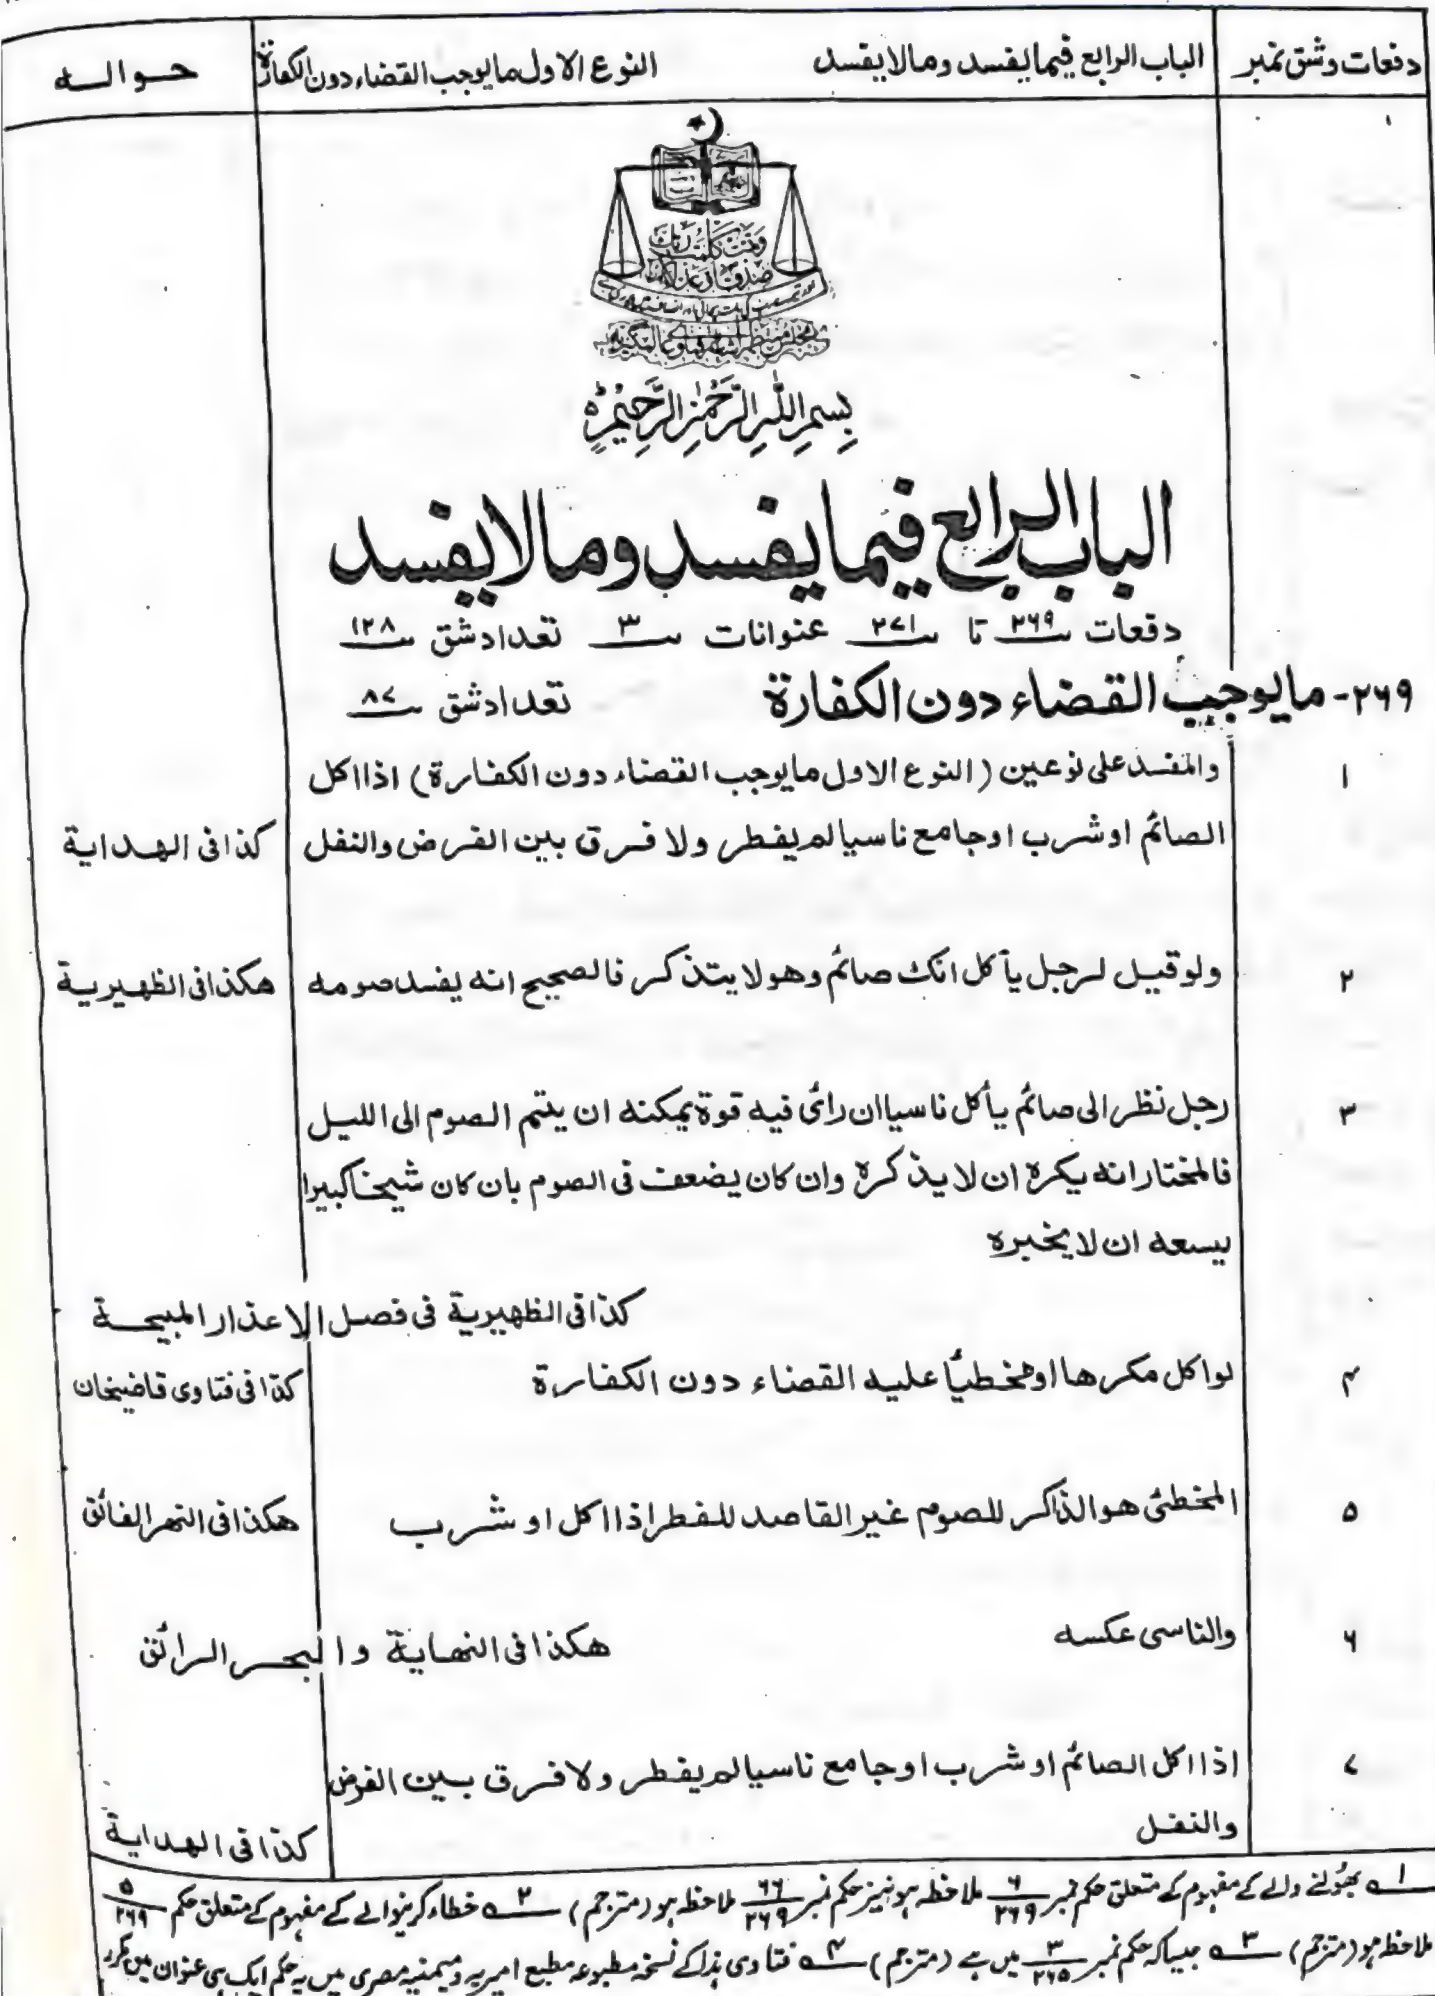 دفعات وشق نمبر الباب الرابع فيما يفسد ومالا يفسد النوع الاول مايوجب القضاء دون الكفارة حوالـه
وتمت كلمت ربك
بسم الله الرحمن الرحيم
الباب الرابع فيما يفسد ومالا يفسد
دفعات ۲۶۹ تا ۲۷۱ عنوانات ۳ تعداد شق ۱۲۸
۲۶۹- مايوجب القضاء دون الكفارة تعداد شق ۸۷
۱ والمفسد على نوعين (النوع الاول مايوجب القضاء دون الكفارة) اذا اكل
الصائم او شرب اوجامع ناسيا لم يفطر ولا فرق بين الفرض والنفل كذا فى الهداية
۲ ولو قيل لرجل يأكل انك صائم وهو لا يتذكر فالصحيح انه يفسد صومه هكذا فى الظهيرية
۳ رجل نظر الى صائم يأكل ناسيا ان رأى فيه قوة يمكنه ان يتم الصوم الى الليل
فالمختار انه يكره ان لا يذكره وان كان يضعف فى الصوم بان كان شيخا كبيرا
يسعه ان لا يخبره
كذا فى الظهيرية فى فصل الاعذار المبيحة
۴ لو اكل مكرها او مخطيًا عليه القضاء دون الكفارة كذا فى فتاوى قاضيخان
۵ المخطئ هو الذاكر للصوم غير القاصد للفطر اذا اكل او شرب هكذا فى النهر الفائق
۶ والناسى عكسه هكذا فى النهاية والبحر الرائق
۷ اذا اكل الصائم او شرب اوجامع ناسيا لم يفطر ولا فرق بين الفرض
والنفل كذا فى الهداية
۱ بھولنے والے کے مفہوم کے متعلق حکم نمبر ۶/۲۶۹ ملاحظہ ہو نیز حکم نمبر ۶۶/۲۶۹ ملاحظہ ہو (مترجم) ۲ خطاء کرنیوالے کے مفہوم کے متعلق حکم ۵/۲۶۹
ملاحظہ ہو (مترجم) ۳ جیسا کہ حکم نمبر ۳/۲۶۵ میں ہے (مترجم) ۴ فتاوی ہذا کے نسخہ مطبوعہ مطبع امیریہ ومیمنیہ مصری میں یہ حکم ایک ہی عنوان میں مکرر